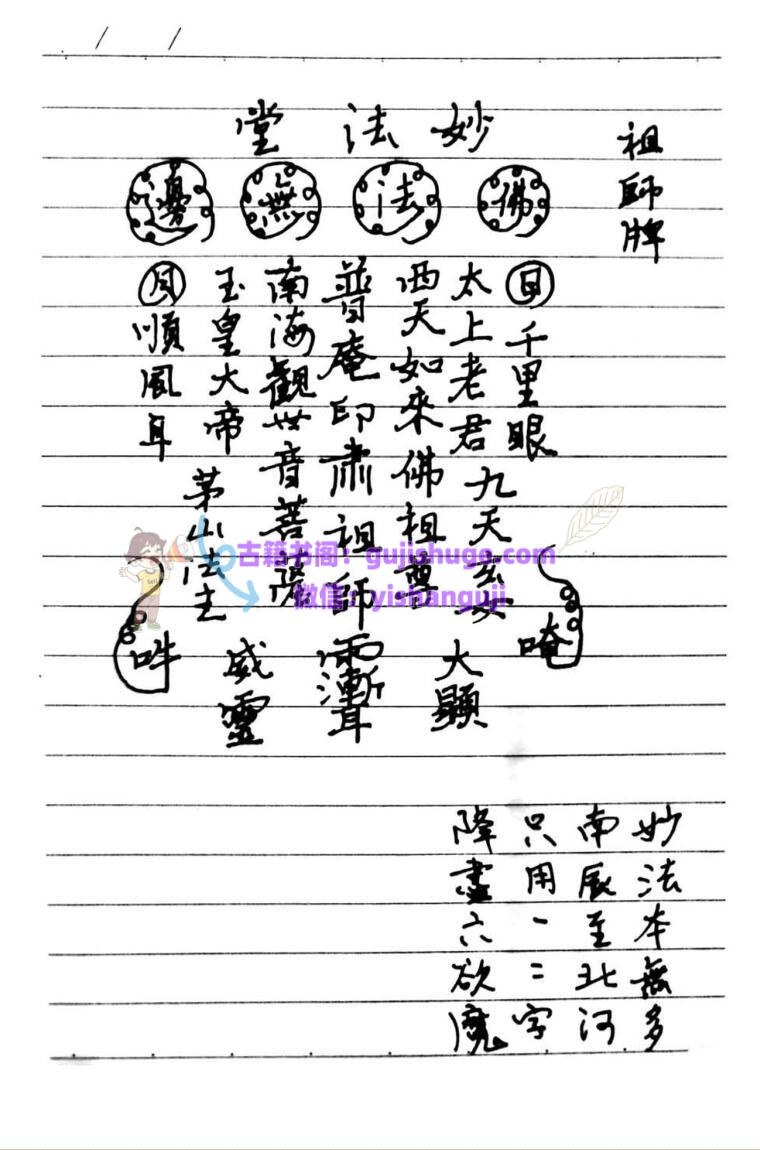 祖師牌
妙法堂
佛法無邊
日千里眼
太上老君
九天玄女
西天如來佛祖尊
普庵印肅祖師
南海觀世音菩薩
玉皇大帝
茅山法主
月順風耳
唵
大顯
威靈
吽
妙法本無多
南辰至北河
只用一二字
降盡六欲魔
古籍书阁:gujishuge.com
微信:yishanguji